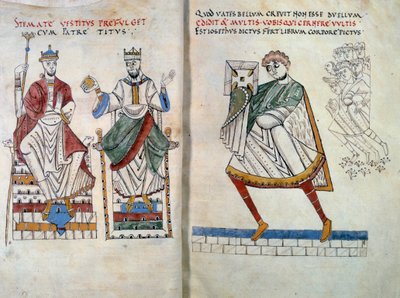 STEMATE VESTITUS PREFULGET
CUM PATRE TITUS
QUOD VATES BELLUM CREVIT NON ESSE DUELLUM
CONDIT A MULTIS VOBISQUI CERNERE VULTIS
EST IOSEPHUS DICTUS FERT LIBRUM CORPORE PICTUS